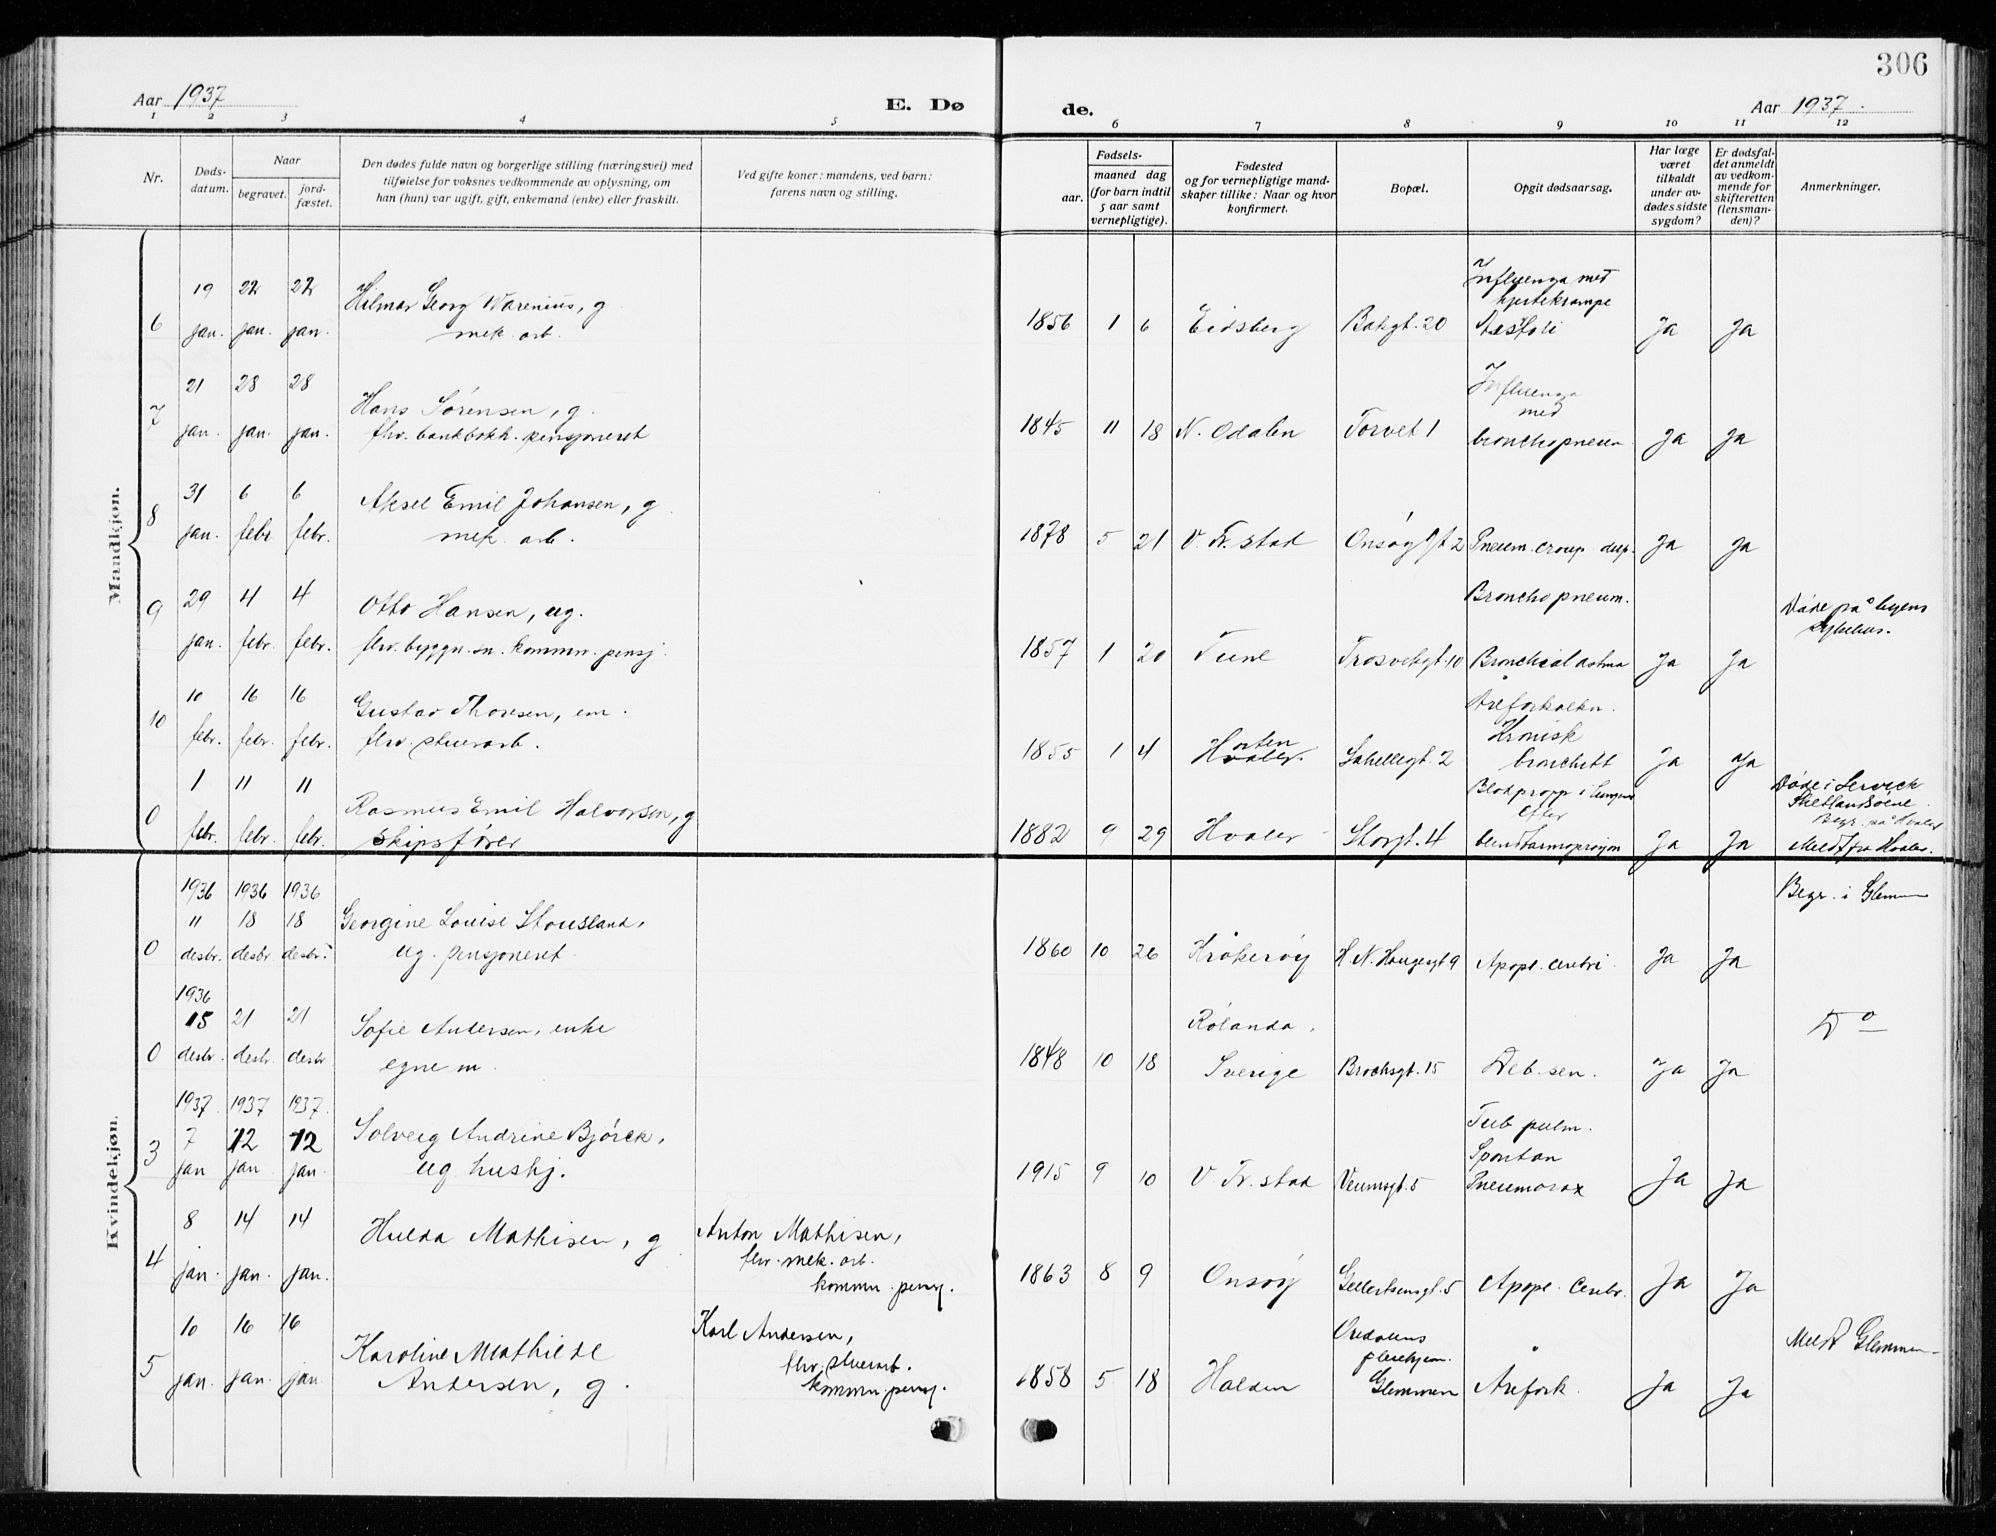 306
Aar 1937
E. Dø
de.
Aar 1937.
1 2 3 4 5
6 7 8 9 10 11 12
Nr.
Døds-
datum.
Naar
begravet.
jord-
fæstet.
Den dødes fulde navn og borgerlige stilling (næringsvei) med
tilføielse for voksnes vedkommende av oplysning, om
han (hun) var ugift, gift, enkemand (enke) eller fraskilt.
Ved gifte koner: mandens, ved barn:
farens navn og stilling.
Fødsels-
aar.
maaned dag
(for barn indtil
5 aar samt
vernepligtige).
Fødested
og for vernepligtige mand-
skaper tillike: Naar og hvor
konfirmert.
Bopæl.
Opgit dødsaarsag.
Har læge
været
tilkaldt
under av-
dødes sidste
sygdom?
Er dødsfal-
det anmeldt
av vedkom-
mende for
skifteretten
(lensman-
den)?
Anmerkninger.
Mandkjøn.
19 22 22
6 jan. jan. jan.
Hilmar Georg Warenius, g
mek. arb.
1856 1 6 Eidsberg Bakgt. 20
Influenza med
hjertekrampe
Ja Ja
21 28 28
7 jan. jan. jan.
Hans Sørensen, g.
flrv. bankbokh. pensjoneret
1845 11 18 N. Odalen Torvet 1
Influenza
med
bronchopneum
Ja Ja
31 6 6
8 jan. febr febr.
Aksel Emil Johansen, g
mek. arb.
1878 5 21 V. Fr.stad Onsøygt 2 Pneum. croup. dup. Ja Ja
29 4 4
9 jan. febr. febr.
Otto Hansen, ug.
flrv. byggn. sn. kommn. pensj.
1857 1 20 Tune Trosvikgt. 10
Bronchopneum.
Bronchial astma
Ja Ja
Døde på byens
sykehus.
10 16 16
10 febr. febr. febr.
Gustav Thoresen, em.
flrv. stuerarb.
1855 1 4 Horten
Hvaler.
Sahellegt. 2
Åreforkalkn.
Kronisk
bronchitt
Ja Ja
1 11 11
0 febr. febr. febr.
Rasmus Emil Halvorsen, g
Skipsfører
1882 9 29 Hvaler Storgt. 4
Blodpropp i lungene
efter
blindtarmoprasjon
Ja Ja
Døde i Lerwick
Shetlandsöene.
Begr. på Hvaler
Meldt fra Hvaler.
Kvindekjøn.
1936 1936 1936
11 18 18
0 desbr. desbr desbr.
Georgine Louise Stousland,
ug. pensjoneret
1860 10 26 Kråkerøy H N. Haugesgt 9 Apopl. cerebri. Ja Ja
Begr. i Glemm
1936
15 21 21
0 desbr. desbr. desbr
Sofie Andersen, enke
egne m.
1848 10 18
Rölanda,
Sverige
Brochsgt. 15 Deb. sen. Ja Ja
Do
1937. 1937 1937.
7 12 12
3 jan jan jan.
Solveig Andrine Bjørck,
ug. hushj.
1915 9 10 V. Fr. stad Veumsgt. 5
Tub pulm.
Spontan
Pneumorax
Ja Ja
8 14 14
4 jan. jan. jan.
Hulda Mathisen, g
Anton Mathisen,
flrv. mek. arb.
kommn. pensj.
1863 8 9 Onsøy Gellertsensgt. 5 Apopl. Cerebr. Ja Ja
10 16 16
5 jan. jan. jan
Karoline Mathilde
Andersen, g.
Karl Andersen,
flrv. stuerarb.
kommn. pensj.
1858 5 18 Halden
pleiehjem.
Glemmen
Årefork. Ja Ja
Meldt Glemmen